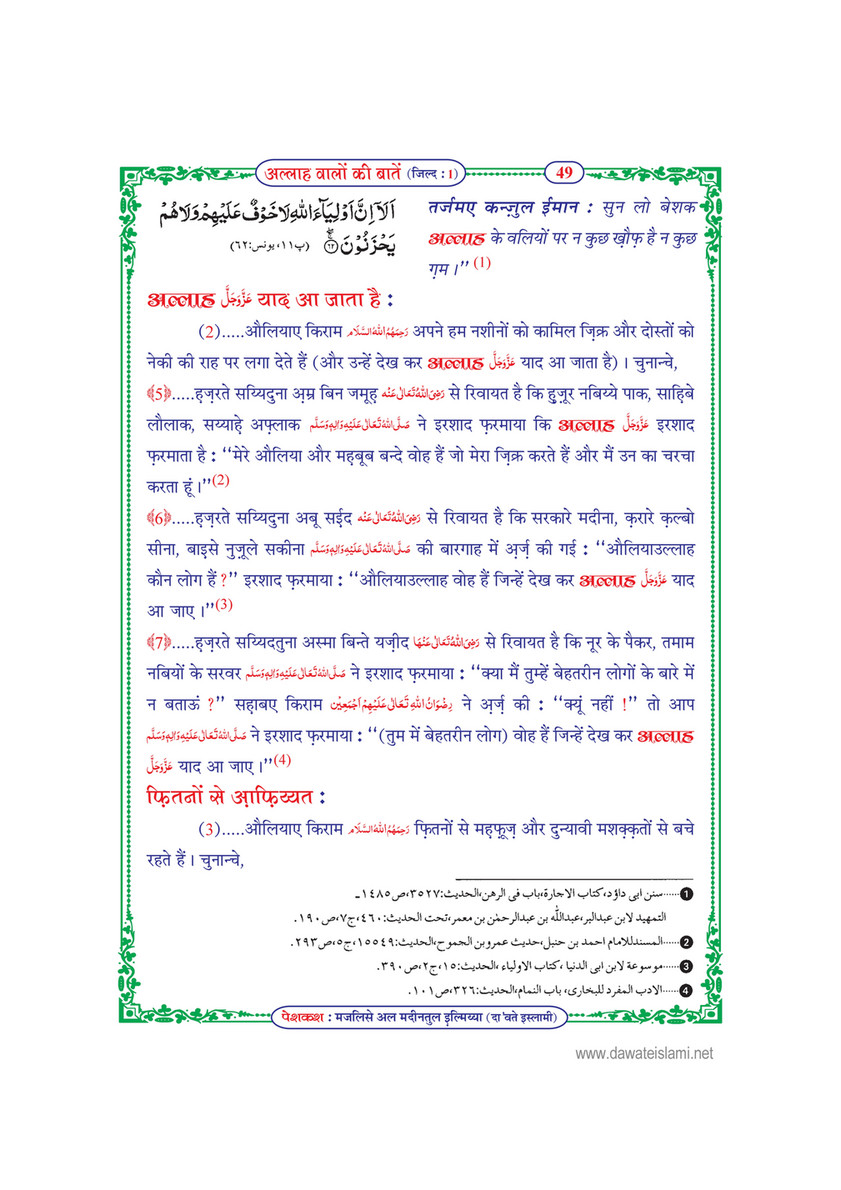 अल्लाह वालों की बातें (जिल्द : 1) 49
اَلَاۤ اِنَّ اَوْلِیَآءَ اللّٰهِ لَا خَوْفٌ عَلَیْهِمْ وَ لَا هُمْ
یَحْزَنُوْنَ ۚۖ﴿۶۲﴾ (پ۱۱،یونس:۶۲)
तर्जमए कन्ज़ुल ईमान : सुन लो बेशक
अल्लाह के वलियों पर न कुछ ख़ौफ़ है न कुछ
ग़म ।” (1)
अल्लाह عَزَّوَجَلَّ याद आ जाता है :
(2).....औलियाए किराम رَحِمَهُمُ اللهُ السَّلَام अपने हम नशीनों को कामिल ज़िक्र और दोस्तों को
नेकी की राह पर लगा देते हैं (और उन्हें देख कर अल्लाह عَزَّوَجَلَّ याद आ जाता है) । चुनान्चे,
﴾5﴿.....हज़रते सय्यिदुना अ़म्र बिन जमूह़ رَضِیَ اللهُ تَعَالٰی عَنْه से रिवायत है कि हुज़ूर नबिय्ये पाक, साह़िबे
लौलाक, सय्याहे़ अफ़्लाक صَلَّی اللهُ تَعَالٰی عَلَیْهِ وَاٰلِهٖ وَسَلَّم ने इरशाद फ़रमाया कि अल्लाह عَزَّوَجَلَّ इरशाद
फ़रमाता है : ‘‘मेरे औलिया और मह़बूब बन्दे वोह हैं जो मेरा ज़िक्र करते हैं और मैं उन का चरचा
करता हूं ।”(2)
﴾6﴿.....हज़रते सय्यिदुना अबू सई़द رَضِیَ اللهُ تَعَالٰی عَنْه से रिवायत है कि सरकारे मदीना, क़रारे क़ल्बो
सीना, बाइसे नुज़ूले सकीना صَلَّی اللهُ تَعَالٰی عَلَیْهِ وَاٰلِهٖ وَسَلَّم की बारगाह में अ़र्ज़ की गई : ‘‘औलियाउल्लाह
कौन लोग हैं ?” इरशाद फ़रमाया : ‘‘औलियाउल्लाह वोह हैं जिन्हें देख कर अल्लाह عَزَّوَجَلَّ याद
आ जाए ।”(3)
﴾7﴿.....हज़रते सय्यिदतुना अस्मा बिन्ते यज़ीद رَضِیَ اللهُ تَعَالٰی عَنْهَا से रिवायत है कि नूर के पैकर, तमाम
नबियों के सरवर صَلَّی اللهُ تَعَالٰی عَلَیْهِ وَاٰلِهٖ وَسَلَّم ने इरशाद फ़रमाया : ‘‘क्या मैं तुम्हें बेहतरीन लोगों के बारे में
न बताऊं ?” सह़ाबए किराम رِضْوَانُ اللهِ تَعَالٰی عَلَیْهِمْ اَجْمَعِیْن ने अ़र्ज़ की : ‘‘क्यूं नहीं !” तो आप
صَلَّی اللهُ تَعَالٰی عَلَیْهِ وَاٰلِهٖ وَسَلَّم ने इरशाद फ़रमाया : ‘‘(तुम में बेहतरीन लोग) वोह हैं जिन्हें देख कर अल्लाह
عَزَّوَجَلَّ याद आ जाए ।”(4)
फ़ितनों से आ़फ़िय्यत :
(3).....औलियाए किराम رَحِمَهُمُ اللهُ السَّلَام फ़ितनों से मह़फ़ूज़ और दुन्यावी मशक़्क़तों से बचे
रहते हैं । चुनान्चे,
1......سنن ابی داؤد،کتاب الاجارة،باب فی الرهن،الحدیث:۳۵۲۷،ص۱۴۸۵۔
التمهید لابن عبدالبر،عبدالله بن عبدالرحمٰن بن معمر،تحت الحدیث:۴۶۰،ج۷،ص۱۹۰.
2......المسندللامام احمد بن حنبل،حدیث عمروبن الجموح،الحدیث:۱۵۵۴۹،ج۵،ص۲۹۳.
3......موسوعة لابن ابی الدنیا ،کتاب الاولیاء ،الحدیث:۱۵،ج۲،ص۳۹۰.
4......الادب المفرد للبخاری، باب النمام،الحدیث:۳۲۶،ص۱۰۱.
पेशकश : मजलिसे अल मदीनतुल इ़ल्मिय्या (दा'वते इस्लामी)
www.dawateislami.net